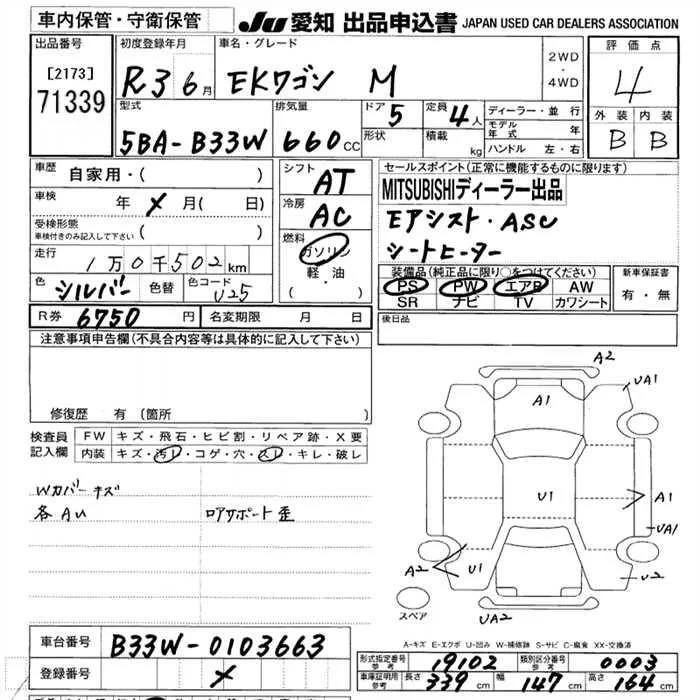 車内保管・守衛保管
JU 愛知 出品申込書 JAPAN USED CAR DEALERS ASSOCIATION
出品番号
[2173]
71339
初度登録年月
R3 6月
車名・グレード
EKワゴン M
2WD
・
4WD
評価点
4
外装 内装
B B
型式
5BA-B33W
排気量
660cc
ドア
5
形状
定員
4人
積載 kg
ディーラー・並行
モデル年式 年
ハンドル 左・右
車歴
自家用・( )
車検 年 メ 月( 日)
受検形態
車検付きのみ記入して下さい ( )
走行
1万0千502km
色 シルバー 色替 色コード U25
シフト
AT
冷房
AC
燃料
ガソリン
軽・油
( ・ )
セールスポイント(正常に機能するものに限ります)
MITSUBISHIディーラー出品
Eアシスト・ASC
シートヒーター
装備品(純正品に限り○をつけてください)
PS PW エアB AW
SR ナビ TV カワシート
新車保証書
有・無
R券 6750円 名変期限 月 日
後日品
注意事項申告欄(不具合内容等は具体的に記入して下さい)
修復歴 有(箇所
検査員
記入欄
FW キズ・飛石・ヒビ割・リペア跡・X要
内装 キズ・汚レ・コゲ・穴・スレ・キレ・破レ
Wカバーキズ
各AU ロアサポート歪
A2
UA1
A1
U1
A1
UA1
A2
U1
U2
UA2
スペア
A-キズ E-エクボ U-凹み W-補修跡 S-サビ C-腐食 XX-交換済
車台番号 B33W-0103663
登録番号 メ
形式指定番号 参考 19102 類別区分番号 参考 0003
車庫証明用 参考 長さ 339cm 幅 147cm 高さ 164cm